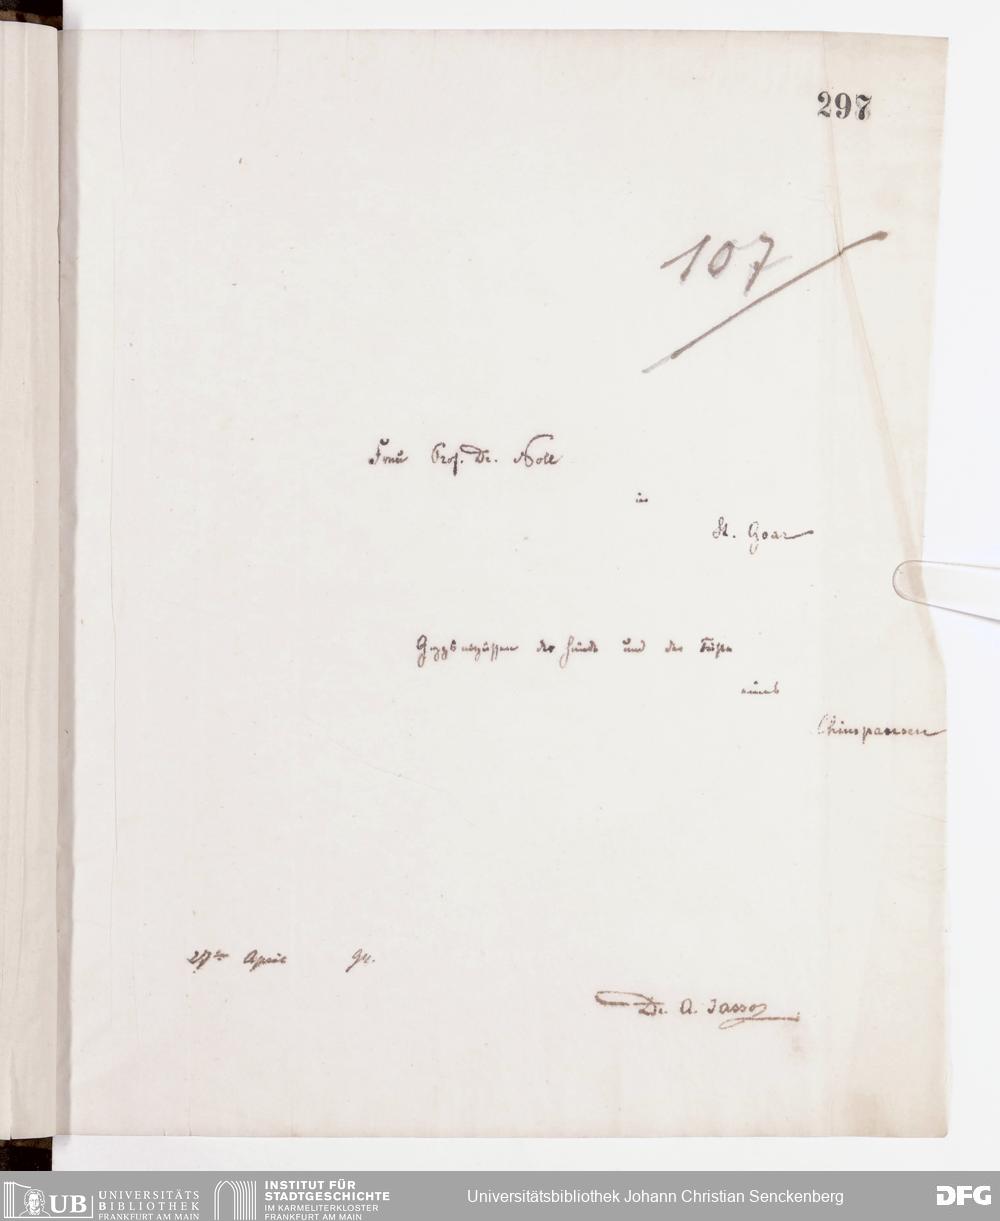 297
107
Frau Prof. Dr. Noll
in
St. Goar
Gypsabgüssen der Hände und der Füße
eines
Chimpansen
27ten April 94.
Dr. A. Jassoy
UB UNIVERSITÄTS
BIBLIOTHEK
FRANKFURT AM MAIN
INSTITUT FÜR
STADTGESCHICHTE
IM KARMELITERKLOSTER
FRANKFURT AM MAIN
Universitätsbibliothek Johann Christian Senckenberg
DFG